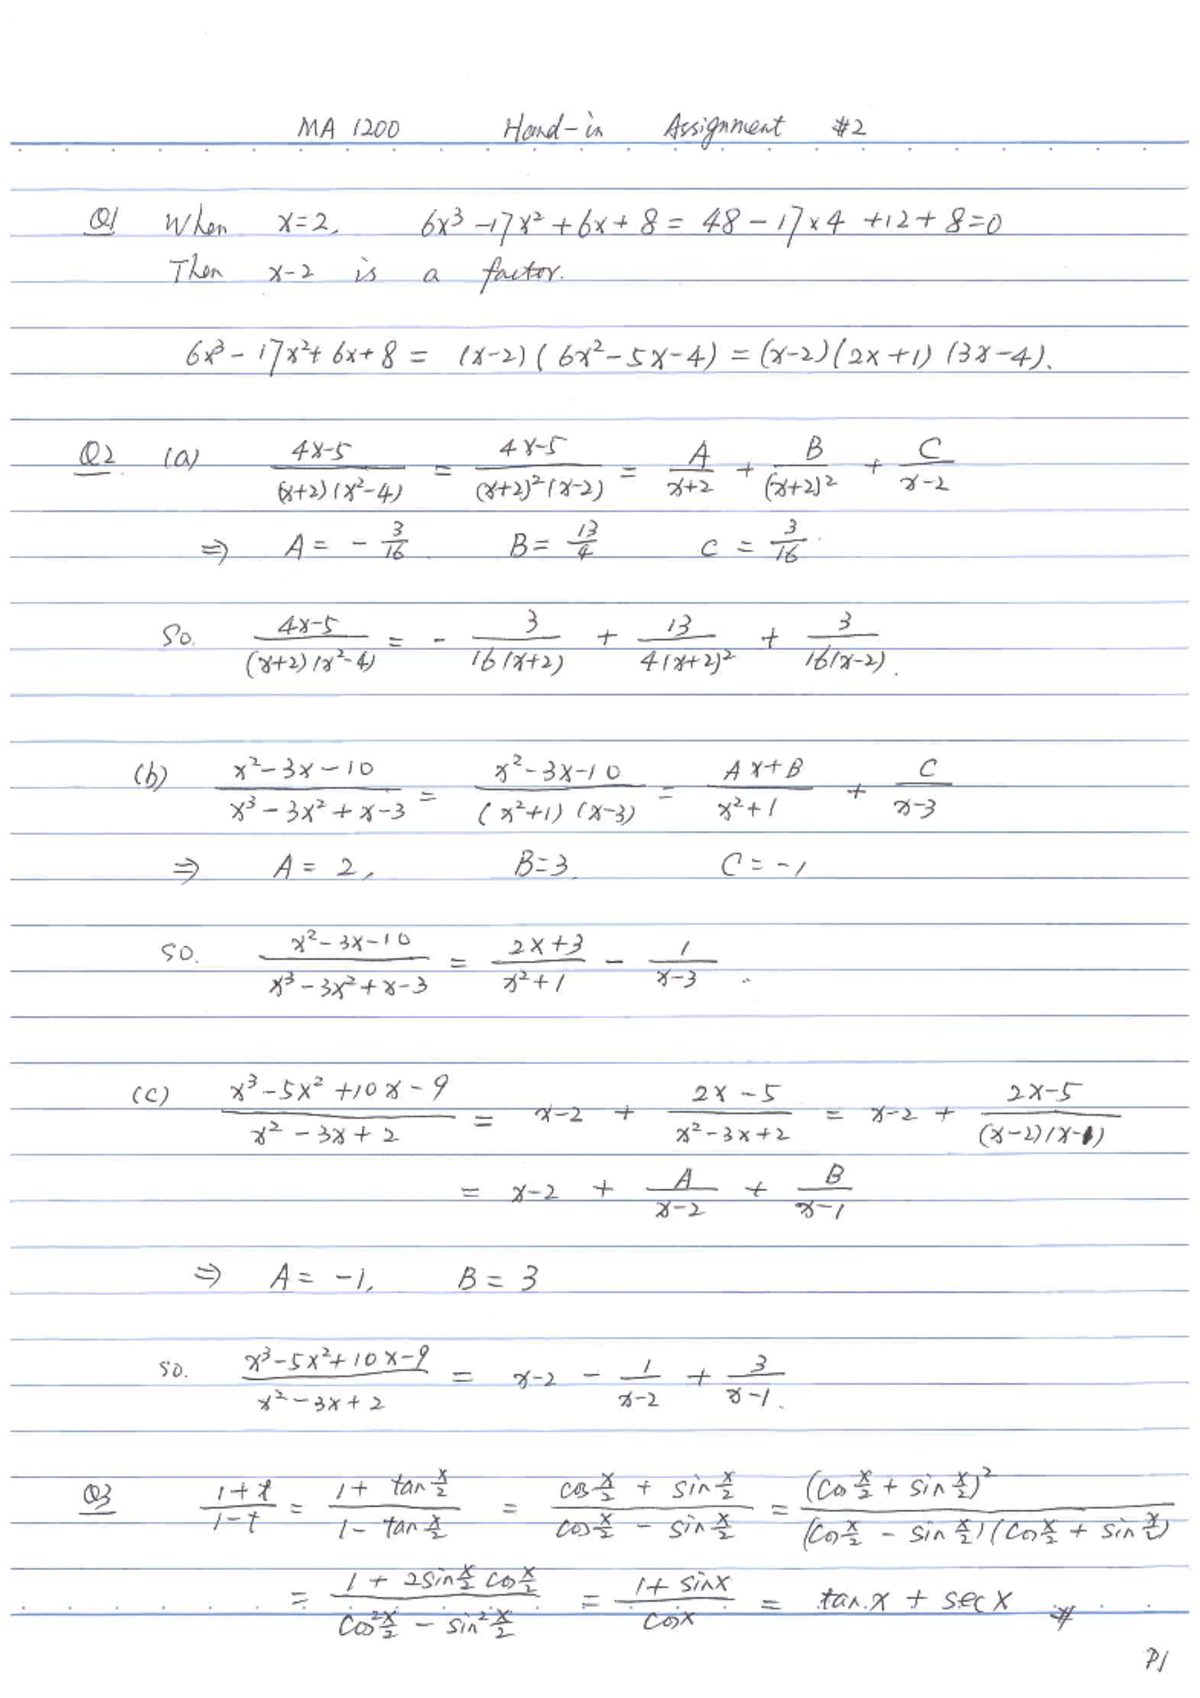 MA 1200 Hand-in Assignment #2
Q1 When x=2, 6x³-17x²+6x+8 = 48-17×4+12+8=0
Then x-2 is a factor.
6x³-17x²+6x+8 = (x-2)(6x²-5x-4) = (x-2)(2x+1)(3x-4).
Q2 (a) (4x-5)/((x+2)(x²-4)) = (4x-5)/((x+2)²(x-2)) = A/(x+2) + B/(x+2)² + C/(x-2)
⇒ A = -3/16 B = 13/4 C = 3/16.
So. (4x-5)/((x+2)(x²-4)) = - 3/(16(x+2)) + 13/(4(x+2)²) + 3/(16(x-2)).
(b) (x²-3x-10)/(x³-3x²+x-3) = (x²-3x-10)/((x²+1)(x-3)) = (Ax+B)/(x²+1) + C/(x-3)
⇒ A = 2, B=3. C = -1
SO. (x²-3x-10)/(x³-3x²+x-3) = (2x+3)/(x²+1) - 1/(x-3).
(c) (x³-5x²+10x-9)/(x²-3x+2) = x-2 + (2x-5)/(x²-3x+2) = x-2 + (2x-5)/((x-2)(x-1))
= x-2 + A/(x-2) + B/(x-1)
⇒ A = -1, B = 3
SO. (x³-5x²+10x-9)/(x²-3x+2) = x-2 - 1/(x-2) + 3/(x-1).
Q3 (1+t)/(1-t) = (1+tan x/2)/(1-tan x/2) = (cos x/2 + sin x/2)/(cos x/2 - sin x/2) = (cos x/2 + sin x/2)²/((cos x/2 - sin x/2)(cos x/2 + sin x/2))
= (1+2sin x/2 cos x/2)/(cos² x/2 - sin² x/2) = (1+sinx)/cosx = tan x + sec x #
P1